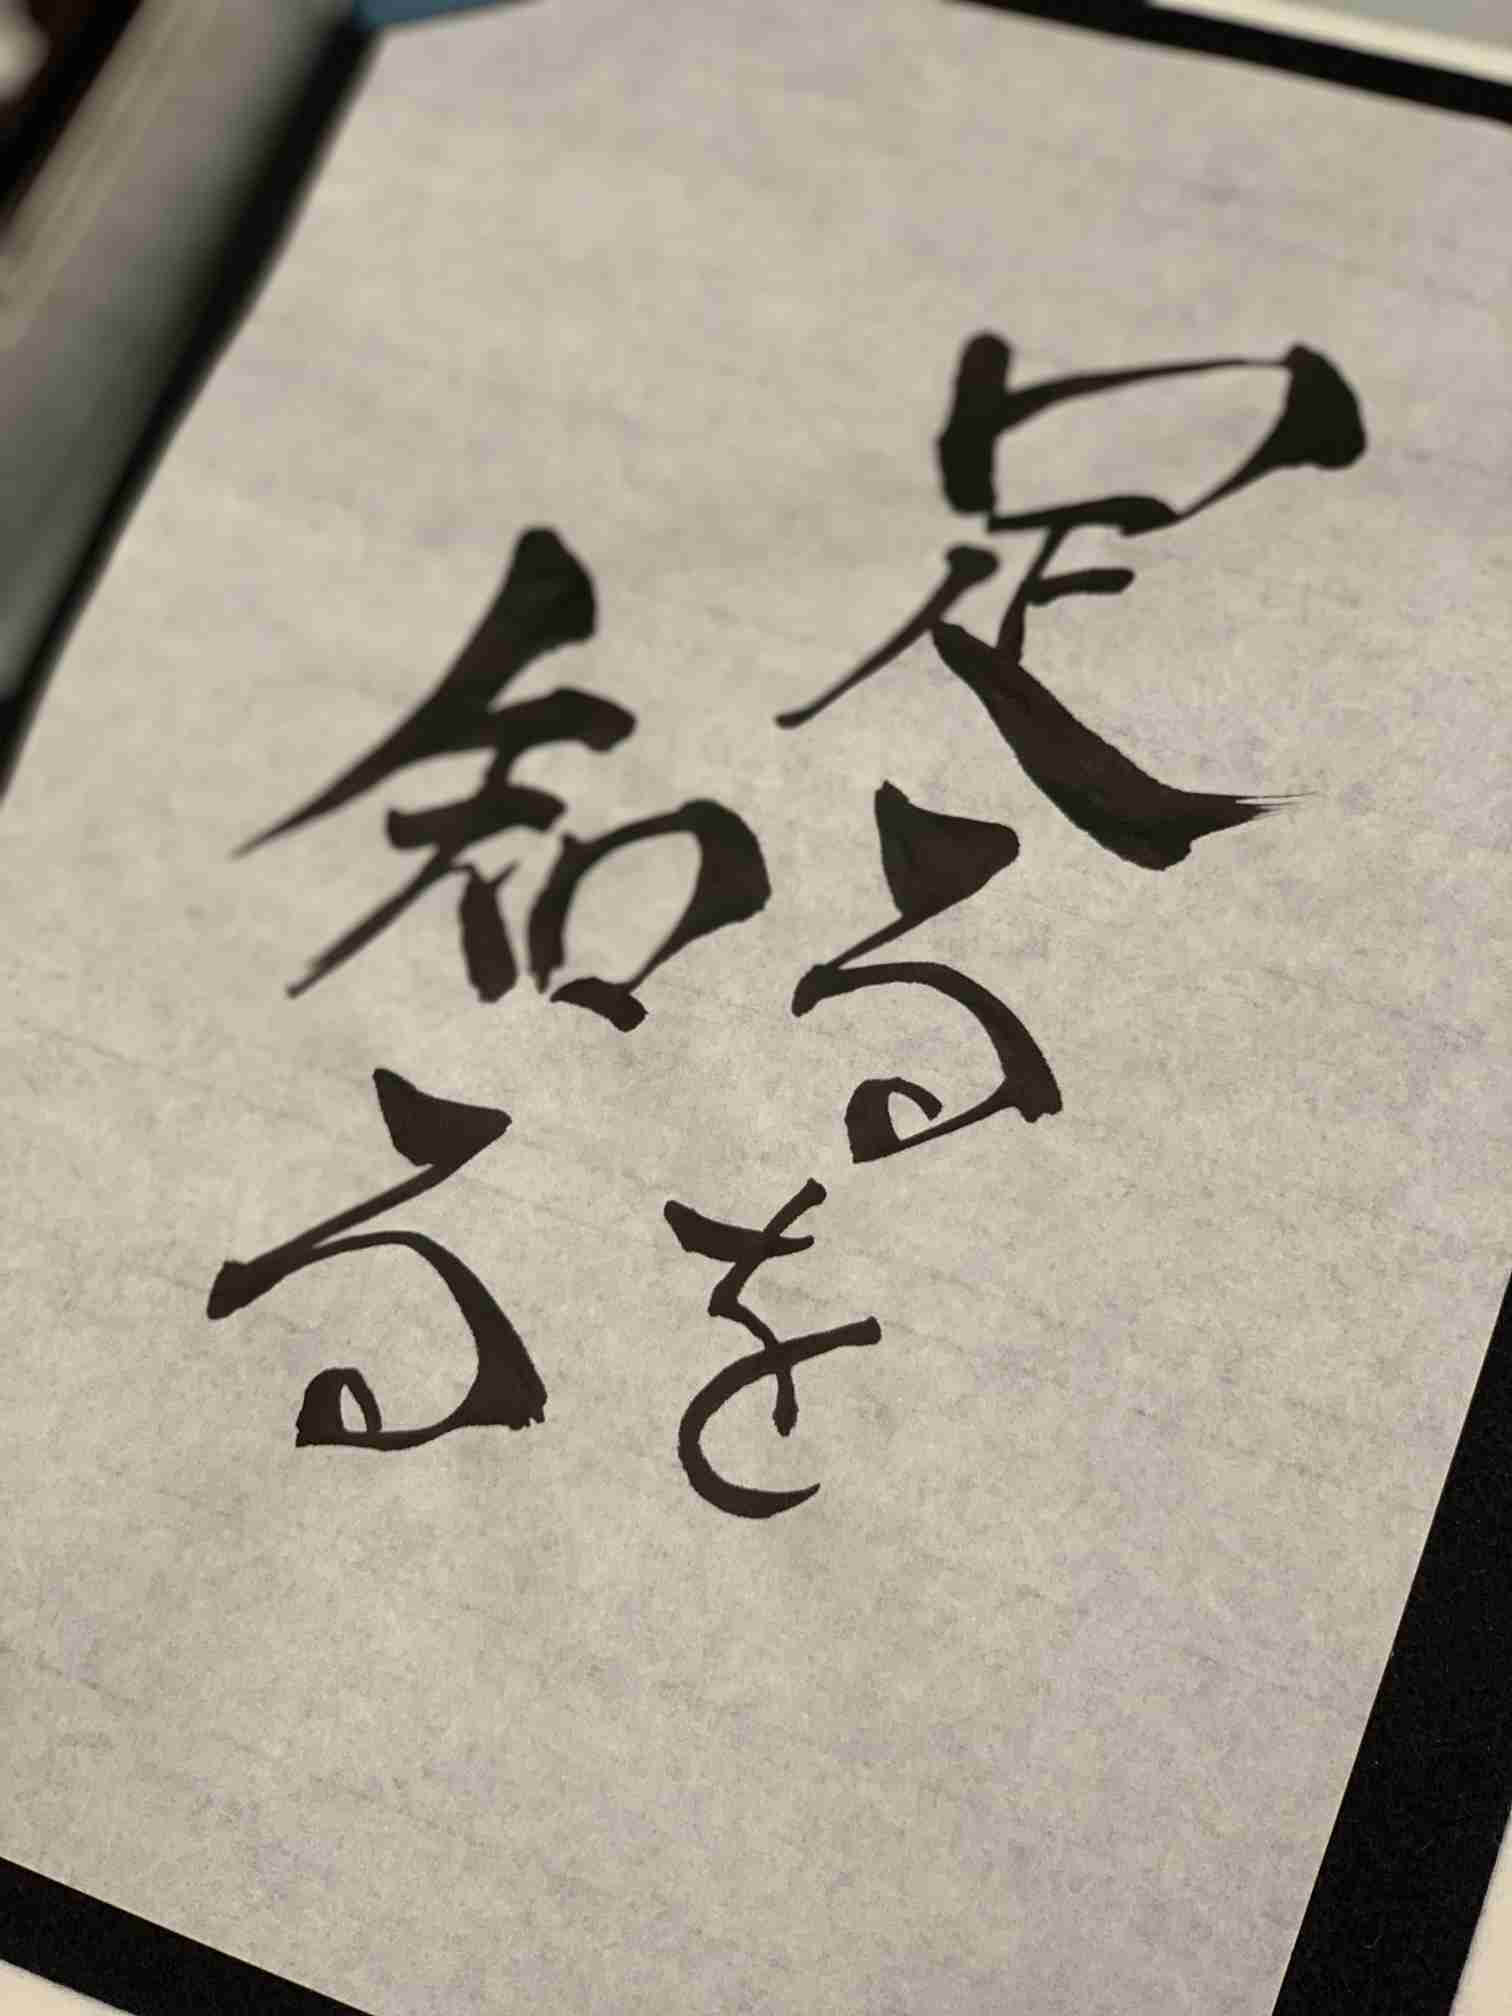 足るを
知る